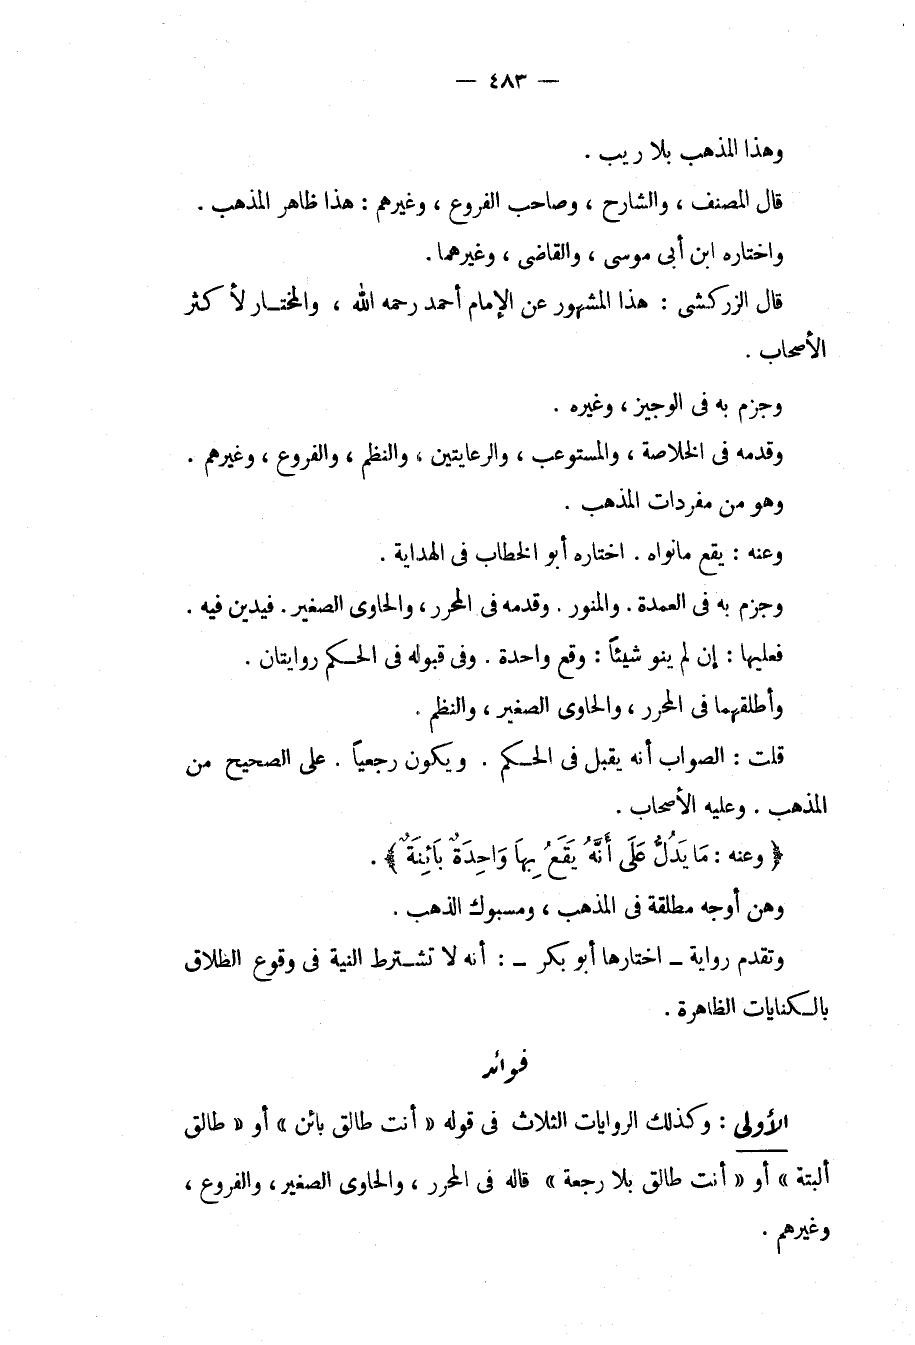 — ٤٨٣ —
وهذا المذهب بلا ريب .
قال المصنف ، والشارح ، وصاحب الفروع ، وغيرهم : هذا ظاهر المذهب .
واختاره ابن أبى موسى ، والقاضى ، وغيرهما .
قال الزركشى : هذا المشهور عن الإمام أحمد رحمه الله ، والمختــار لأكثر
الأصحاب .
وجزم به فى الوجيز ، وغيره .
وقدمه فى الخلاصة ، والمستوعب ، والرعايتين ، والنظم ، والفروع ، وغيرهم .
وهو من مفردات المذهب .
وعنه : يقع مانواه . اختاره أبو الخطاب فى الهداية .
وجزم به فى العمدة . والمنور . وقدمه فى المحرر ، والحاوى الصغير . فيدين فيه .
فعليها : إن لم ينو شيئاً : وقع واحدة . وفى قبوله فى الحـكم روايتان .
وأطلقهما فى المحرر ، والحاوى الصغير ، والنظم .
قلت : الصواب أنه يقبل فى الحـكم . ويكون رجعياً . على الصحيح من
المذهب . وعليه الأصحاب .
﴿ وعنه : مَا يَدُلُّ عَلَى أَنَّهُ يَقَعُ بِهَا وَاحِدَةٌ بَائِنَةٌ ﴾ .
وهن أوجه مطلقة فى المذهب ، ومسبوك الذهب .
وتقدم رواية ــ اختارها أبو بكر ــ : أنه لا تشــترط النية فى وقوع الطلاق
بالـكنايات الظاهرة .
فوائد
الأولى : وكذلك الروايات الثلاث فى قوله « أنت طالق بائن » أو « طالق
ألبتة » أو « أنت طالق بلا رجعة » قاله فى المحرر ، والحاوى الصغير ، والفروع ،
وغيرهم .